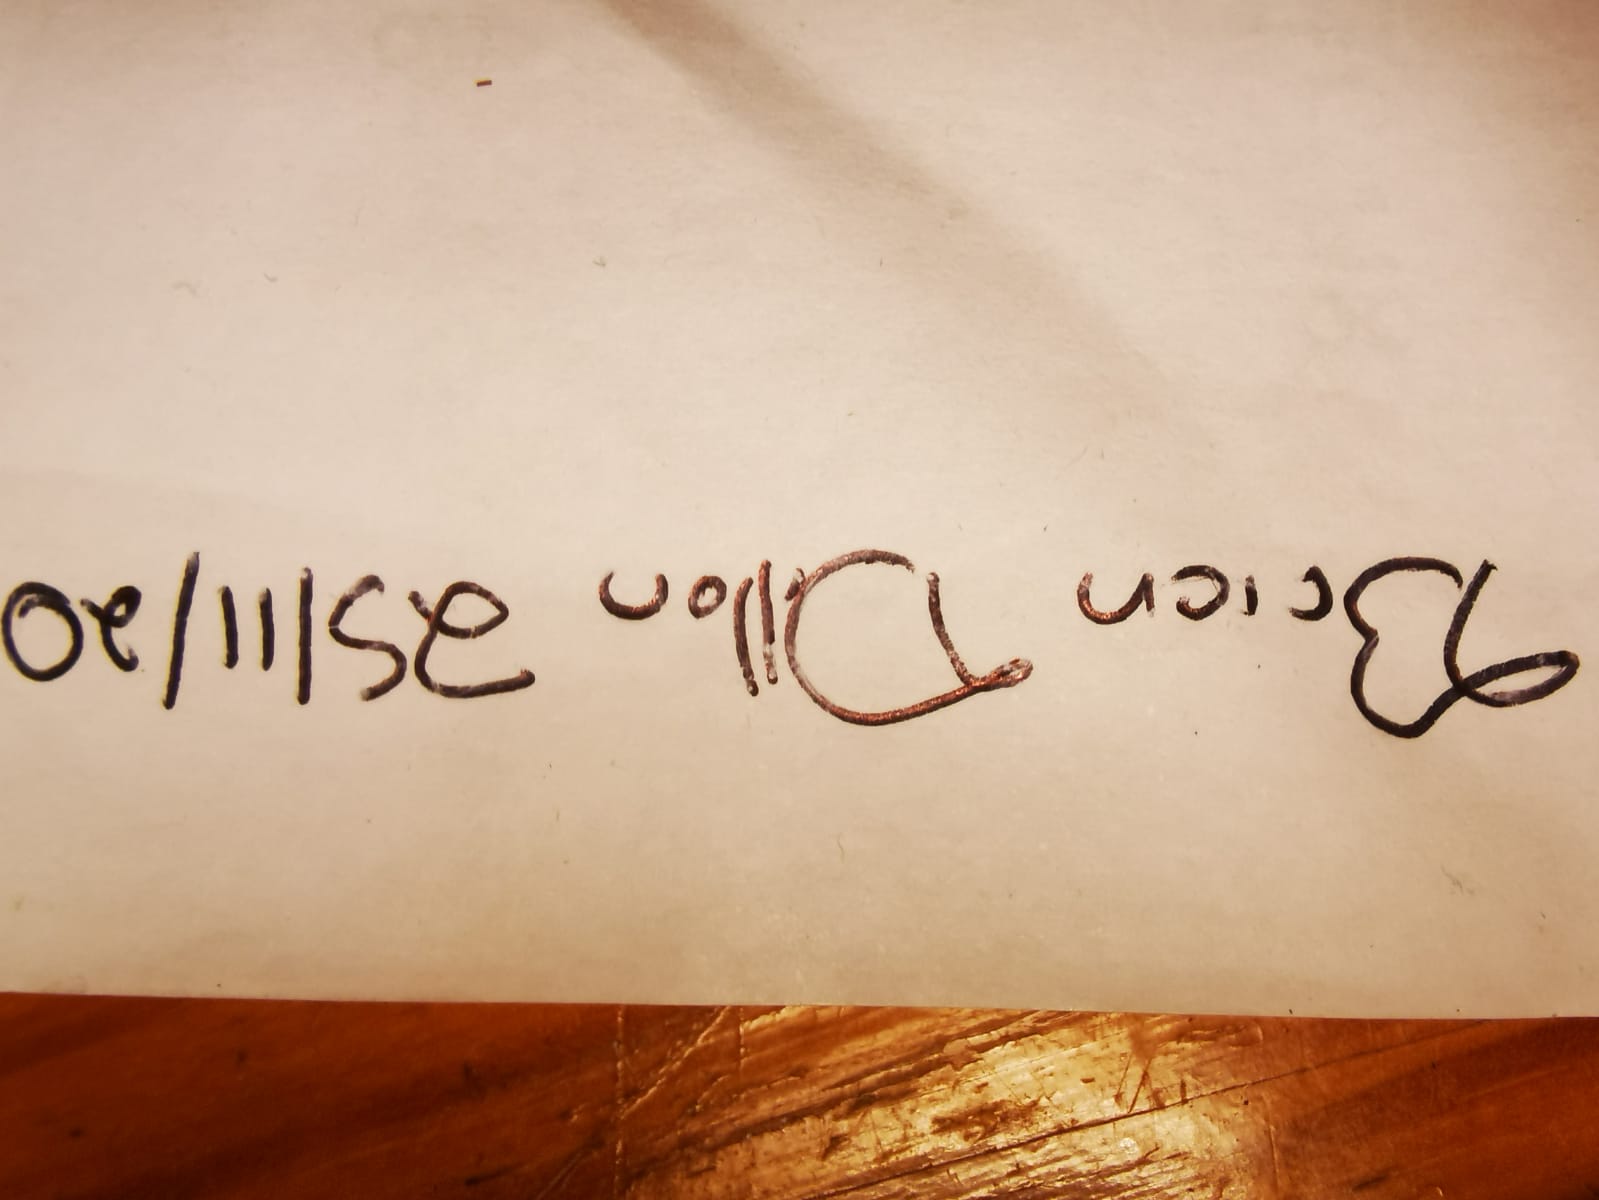 Brian Dillon 25/11/20